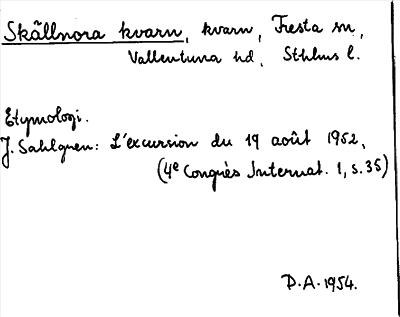 Skållnora kvarn, kvarn, Fresta sn,
Vallentuna hd, Sthlms l.
Etymologi.
J. Sahlgren: L'excursion du 19 août 1952,
(4e Congrès Internat. 1, s. 35)
D.A. 1954.